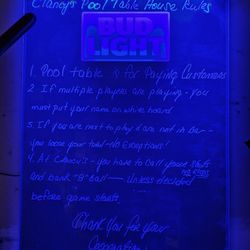 Clancy's Pool Table House Rules
BUD
LIGHT
1. Pool table is for Paying Customers
2 If multiple players are playing - You
must put your name on white board
3. If you are next to play & are not in bar --
you loose your turn - No Exceptions!
4. At Clancy's - you have to call your shot
no slops
and bank "8" ball -- Unless decided
before game starts.
Thank You for your
Cooperation!